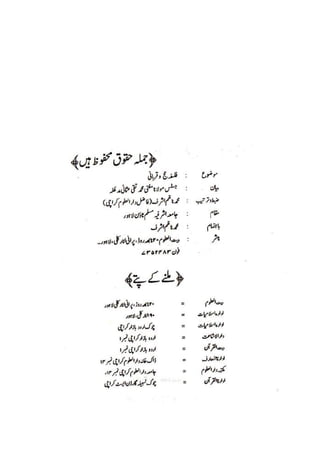 ﴿جملہ حقوق محفوظ ہیں﴾
موضوع : فلسفہ حج و قربانی
بیان : جسٹس مولانا مفتی محمد تقی عثمانی مدظلہ
ضبط و ترتیب : محمد ناظم اشرف (فاضل دارالعلوم کراچی)
مقام : جامعہ اشرفیہ مسلم ٹاؤن لاہور
باہتمام : محمد ناظم اشرف
ناشر : بیت العلوم ۲۰ نابھہ روڈ، پرانی انارکلی، لاہور۔
فون ۷۳۵۲۴۸۳
﴿ملنے کے پتے﴾
بیت العلوم = ۲۰ نابھہ روڈ، پرانی انارکلی، لاہور
ادارہ اسلامیات = ۱۹۰ انارکلی، لاہور
ادارہ اسلامیات = چوک اردو بازار کراچی
دارالاشاعت = اردو بازار کراچی نمبر۱
بیت القرآن = اردو بازار کراچی نمبر۱
ادارۃ المعارف = ڈاک خانہ دارالعلوم کراچی نمبر ۱۴
مکتبہ دارالعلوم = جامعہ دارالعلوم کراچی نمبر ۱۴
ادارۃ القرآن = چوک لسبیلہ گارڈن ایسٹ کراچی